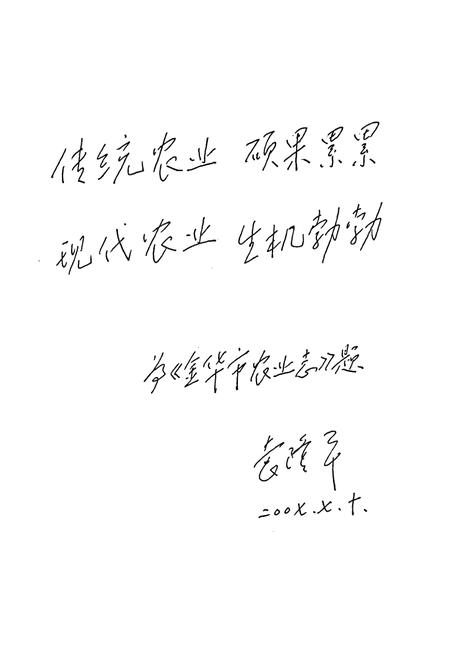 传统农业 硕果累累
现代农业 生机勃勃
为《金华市农业志》题
袁隆平
二〇〇七.七.十.